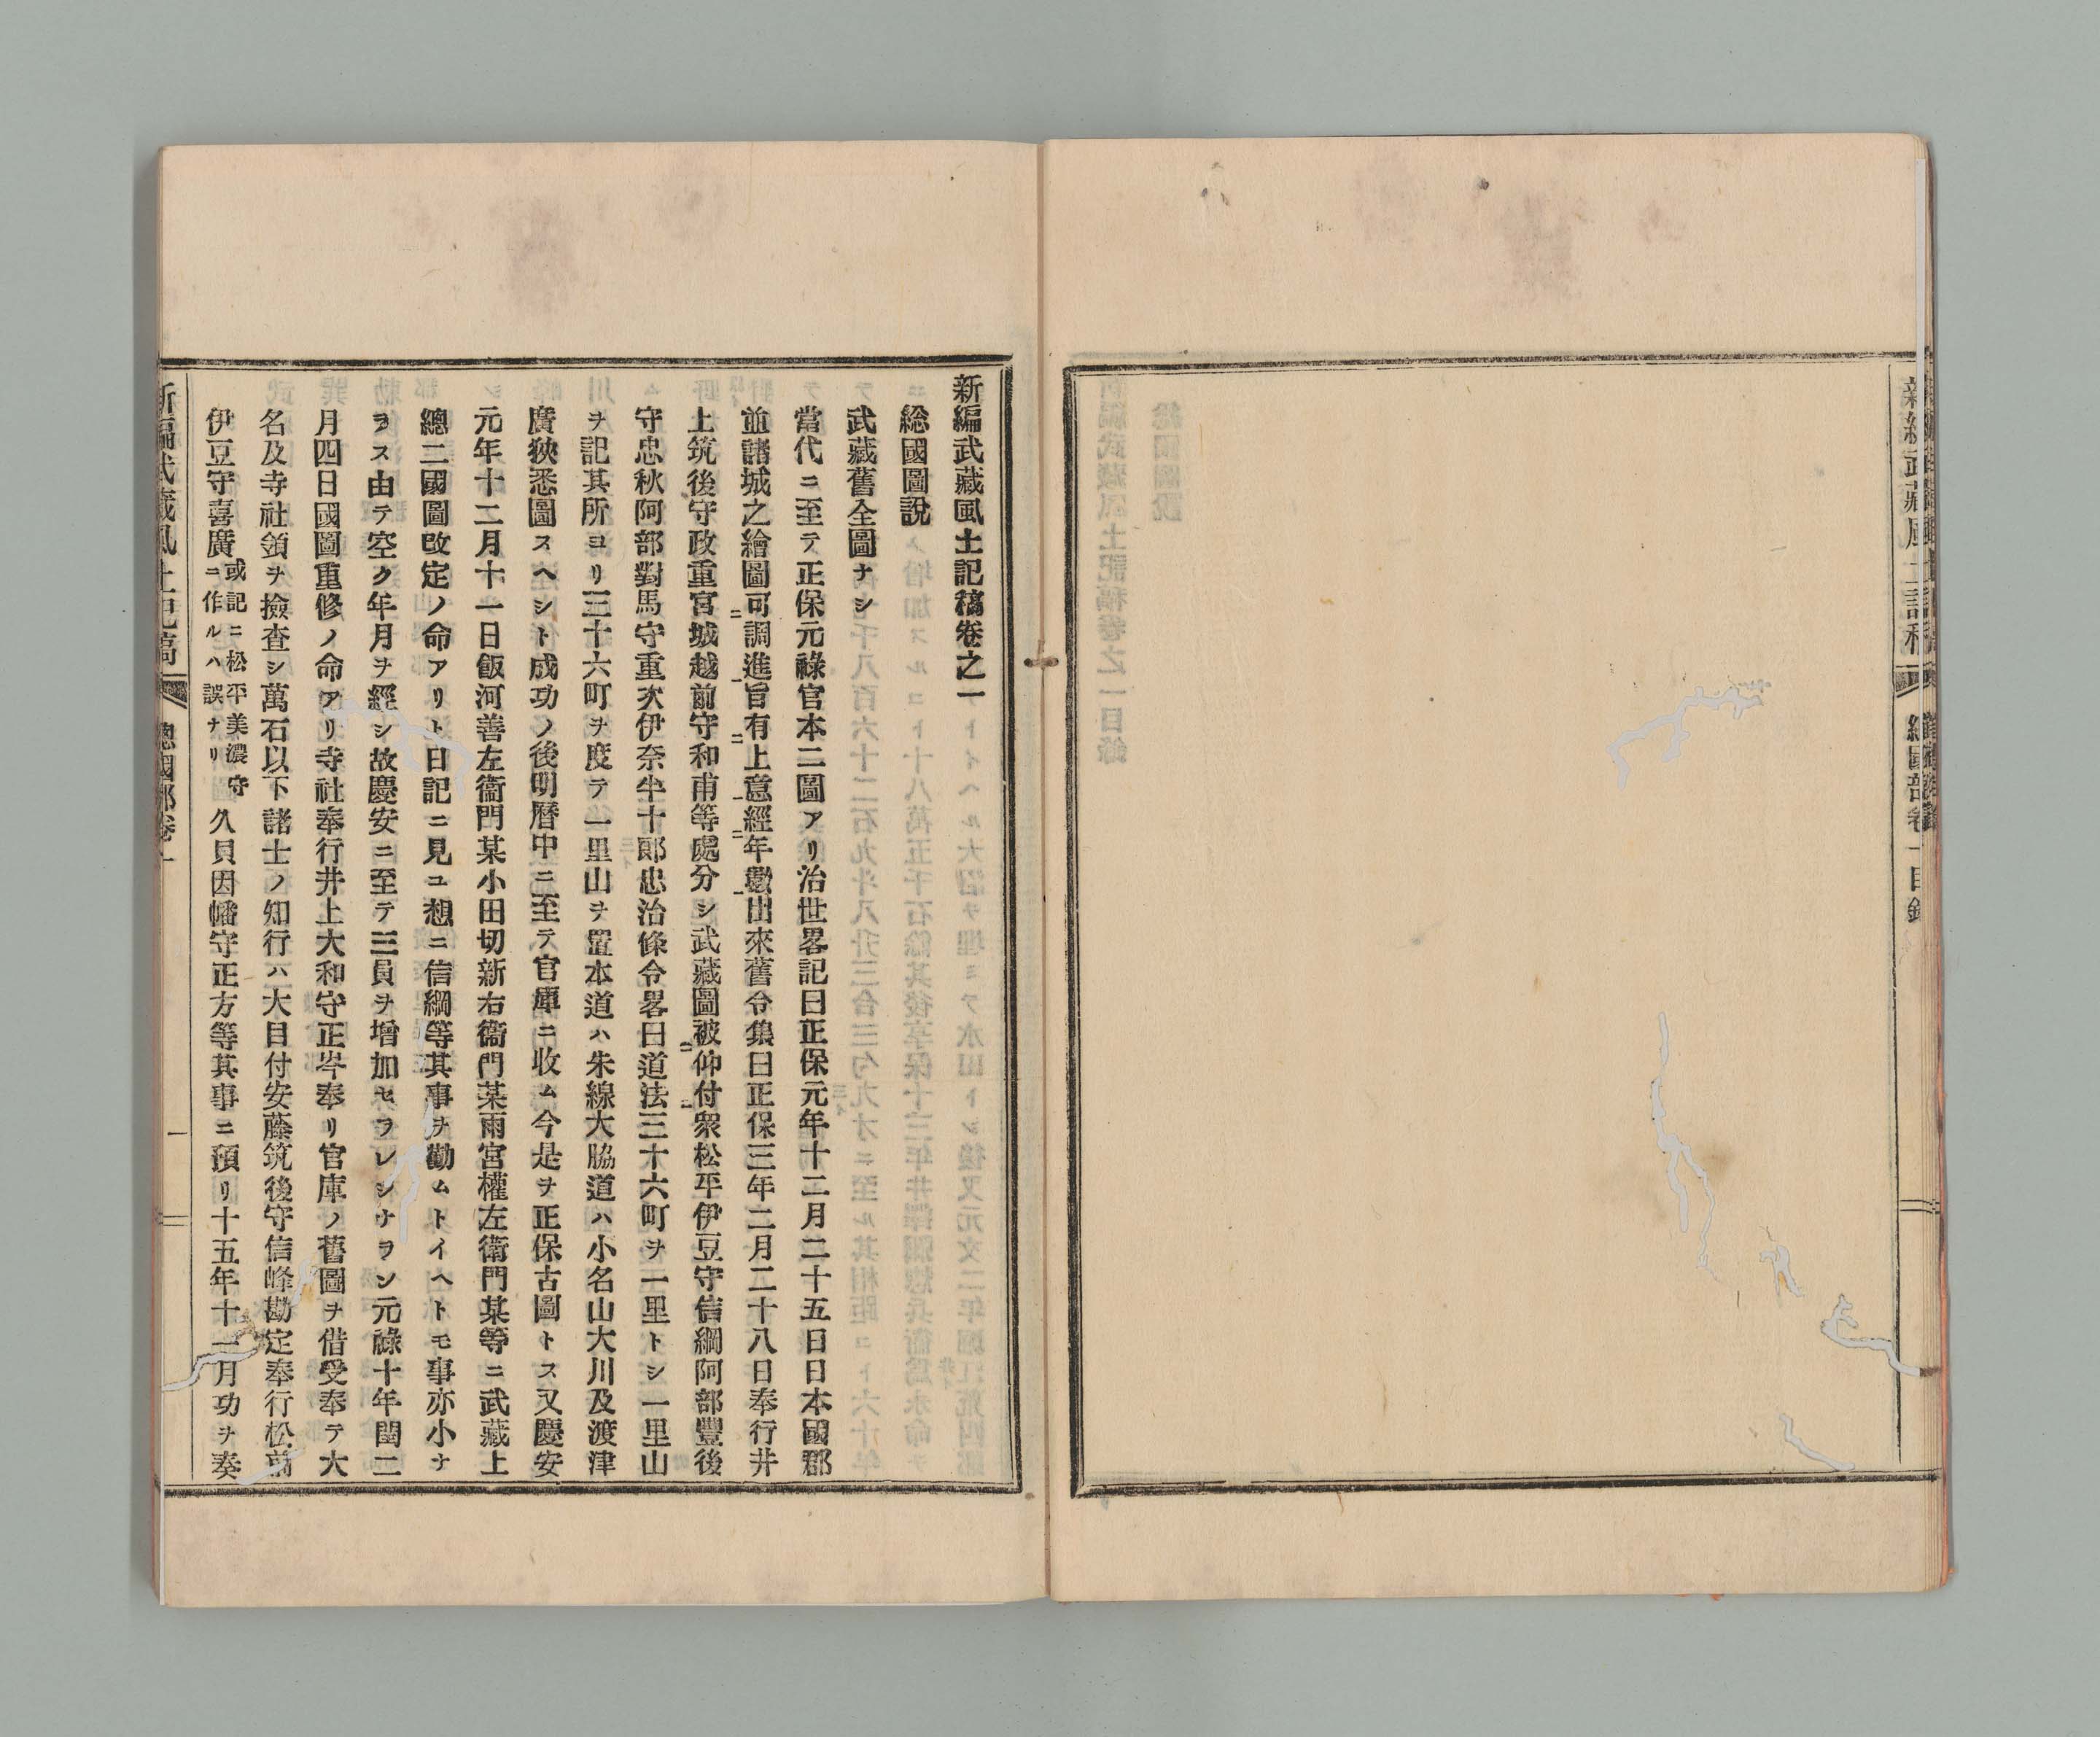 新編武藏風土記稿卷之一
總國圖說
武藏舊全圖ナシ
當代ニ至テ正保元祿官本二圖アリ治世畧記曰正保元年十二月二十五日日本國郡
並諸城之繪圖可調進旨有上意經年數出來舊令集曰正保三年二月二十八日奉行井
上筑後守政重宮城越前守和甫等處分シ武藏圖被仰付衆松平伊豆守信綱阿部豐後
守忠秋阿部對馬守重次伊奈半十郎忠治條令畧曰道法三十六町ヲ一里トシ一里山
ヲ記其所ヨリ三十六町ヲ度テ一里山ヲ置本道ハ朱線大脇道ハ小名山大川及渡津
廣狹悉圖スヘシト成功ノ後明曆中ニ至テ官庫ニ收ム今是ヲ正保古圖トス又慶安
元年十二月十一日飯河善左衞門某小田切新右衞門某雨宮權左衞門某等ニ武藏上
總二國圖改定ノ命アリト日記ニ見ユ想ニ信綱等其事ヲ勸ムトイヘトモ事亦小ナ
ヲス由テ空ク年月ヲ經シ故慶安ニ至テ三員ヲ增加セラレシナラン元祿十年閏二
月四日國圖重修ノ命アリ寺社奉行井上大和守正岑奉リ官庫ノ舊圖ヲ借受奉テ大
名及寺社領ヲ撿查シ萬石以下諸士ノ知行ハ大目付安藤筑後守信峰勘定奉行松前
伊豆守喜廣或記ニ松平美濃守ニ作ルハ誤ナリ久貝因幡守正方等其事ニ預リ十五年十二月功ヲ奏
新編武藏風土記稿 總國部卷一
一